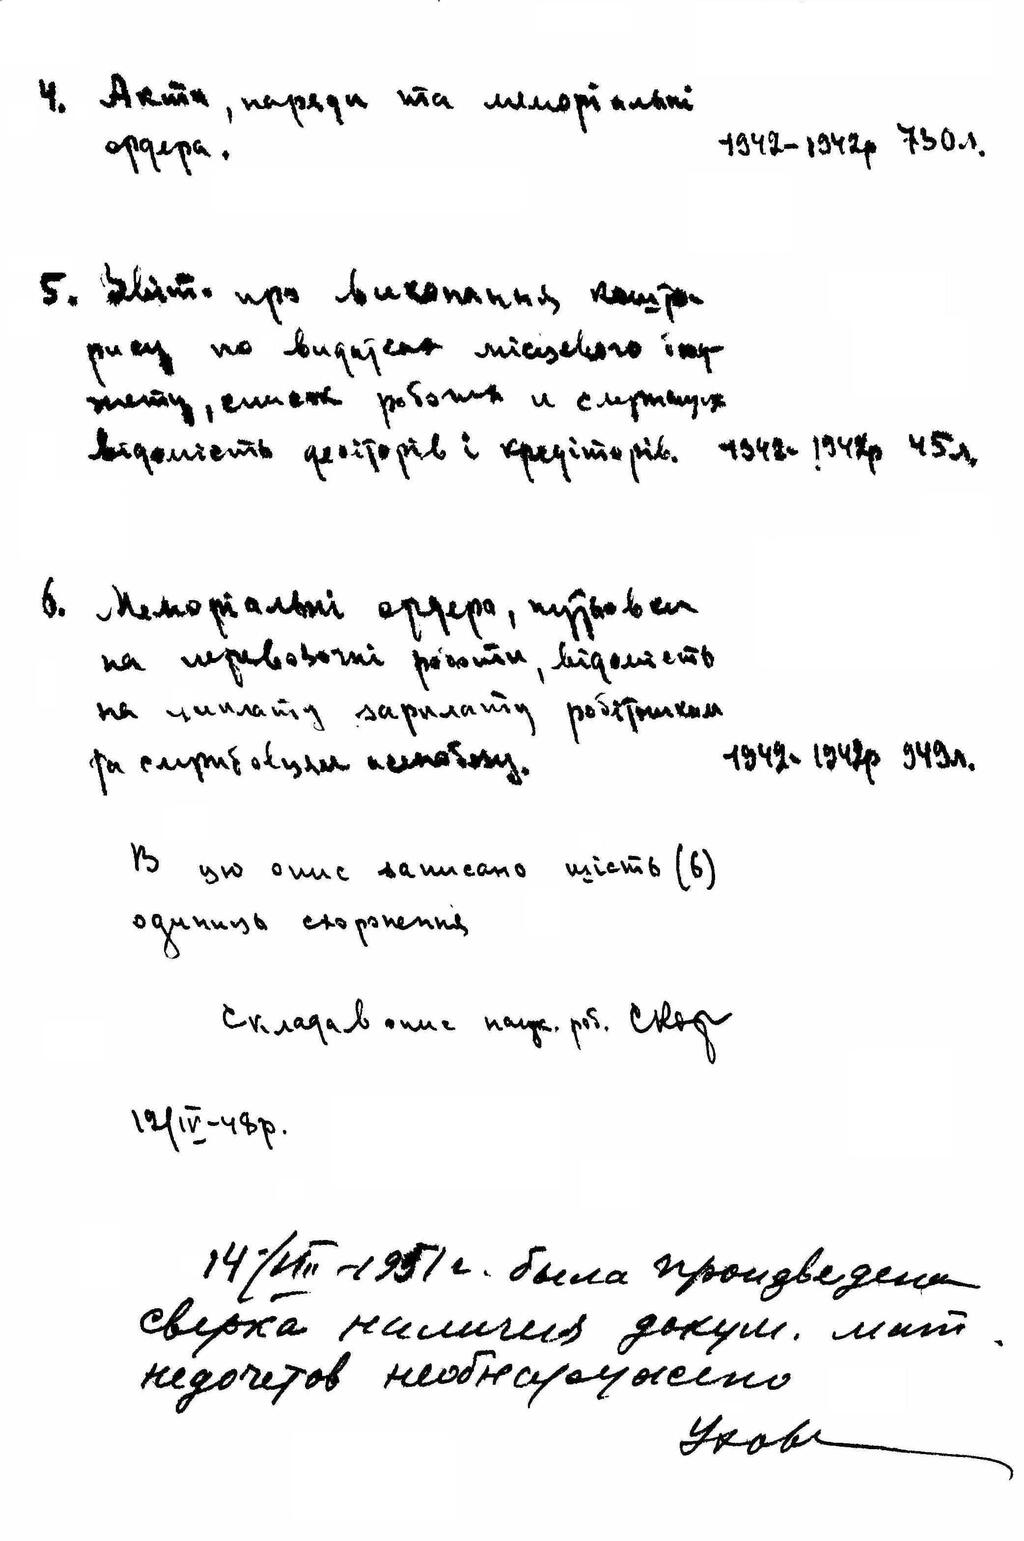 4. Акти, наряди та меморіальні
ордера. 1942-1942р 730л.
5. Звіти про виконання кошто-
рису по видаткам місцевого бюд-
жету, список робочих и служащих
відомість дебіторів і кредіторів. 1942-1942р 45л.
6. Меморіальні ордера, путьовки
на перевозочні роботи, відомість
на виплату зарплати робітникам
та службовцям
1942-1942р 949л.
В цю опис записано шість (6)
одиниць схоронення
Складав опис наук. роб.
12/IV-48р.
14/VIII-1951г. была произведена
сверка наличия докум. мат.
недочетов необнаружено